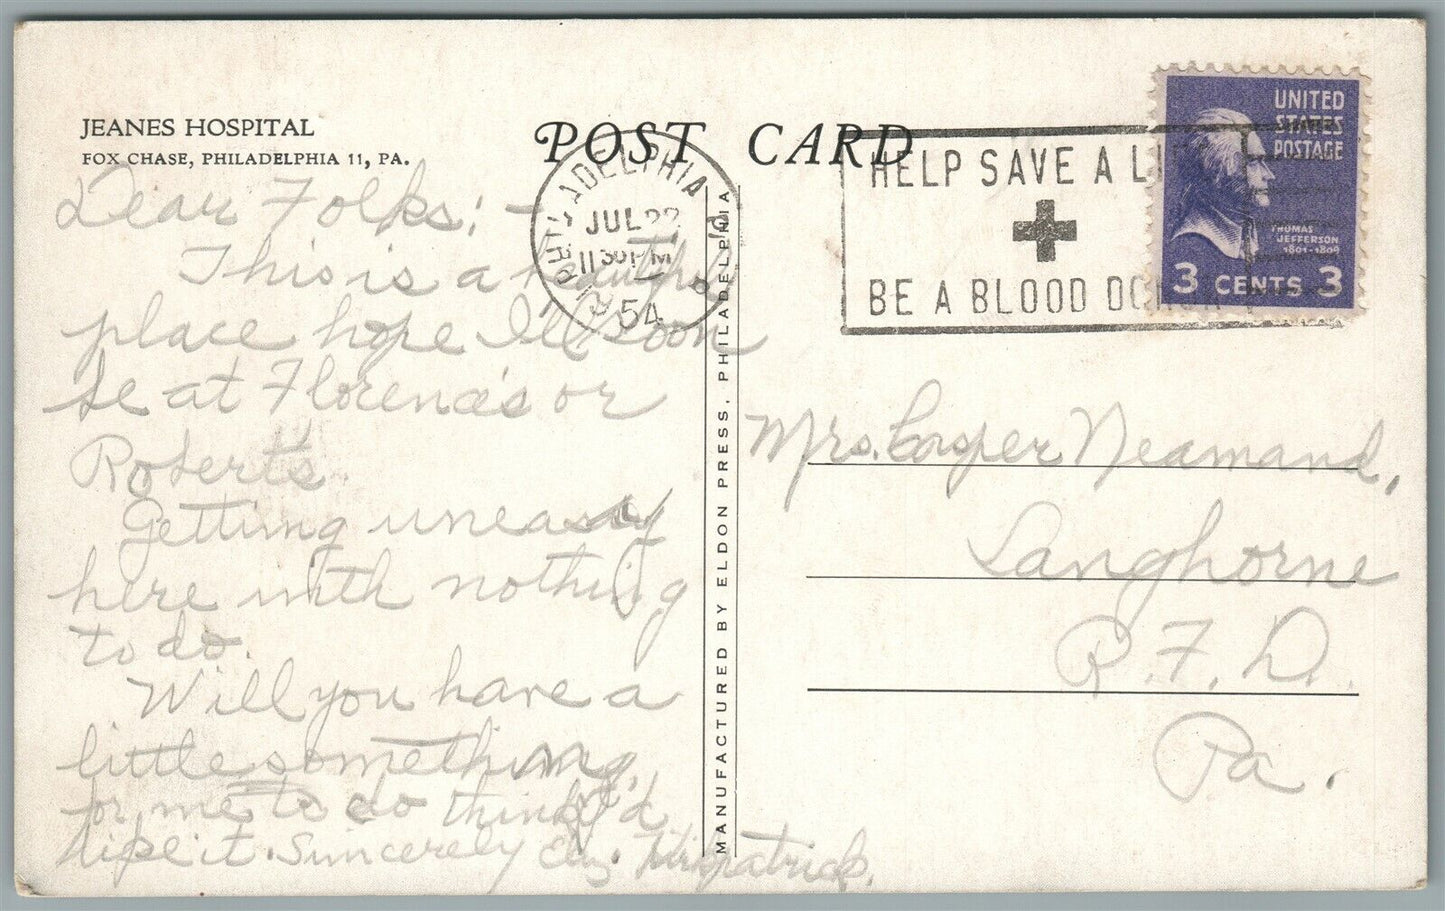 JEANES HOSPITAL
FOX CHASE, PHILADELPHIA 11, PA.
POST CARD
PHILADELPHIA
JUL 22
11 30 PM
54
PA
HELP SAVE A LI
BE A BLOOD DONOR
UNITED
STATES
POSTAGE
THOMAS
JEFFERSON
1801-1809
3 CENTS 3
Dear Folks: -
This is a beautiful
place hope Ill soon
be at Florence's or
Robert's
Getting uneasy
here with nothing
to do.
Will you have a
little something
for me to do think I'd
like it. Sincerely Eliz. Kirkpatrick.
MANUFACTURED BY ELDON PRESS, PHILADELPHIA
Mrs. Casper Neamand,
Langhorne
R.F.D.
Pa.